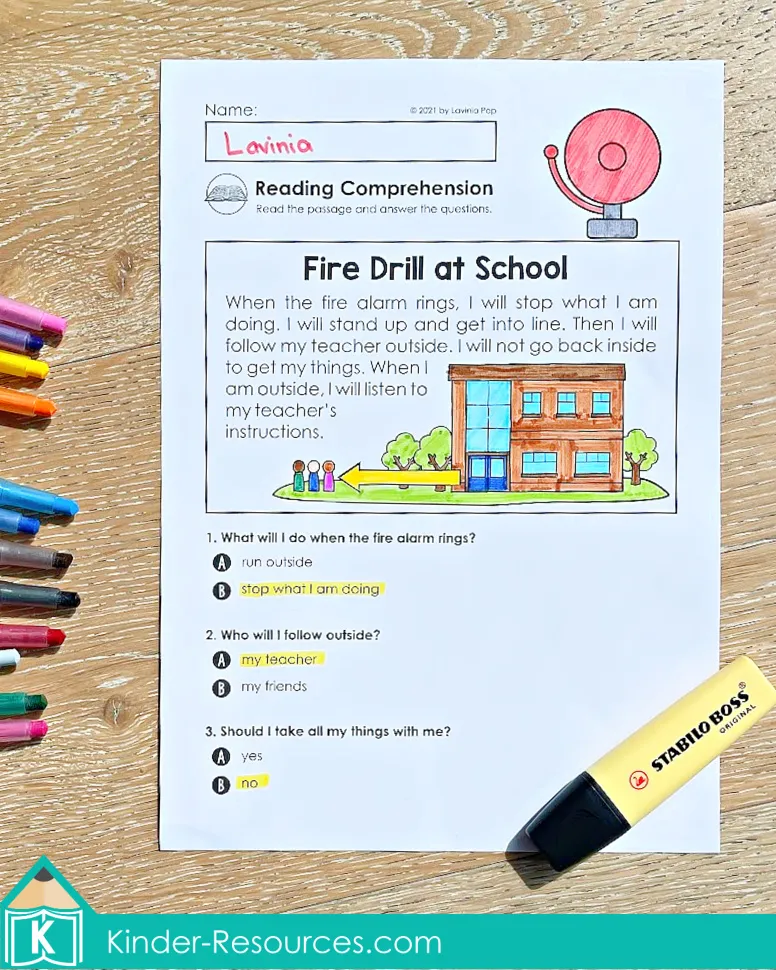 Name:
© 2021 by Lavinia Pop
Lavinia
Reading Comprehension
Read the passage and answer the questions.
Fire Drill at School
When the fire alarm rings, I will stop what I am
doing. I will stand up and get into line. Then I will
follow my teacher outside. I will not go back inside
to get my things. When I
am outside, I will listen to
my teacher's
instructions.
1. What will I do when the fire alarm rings?
A run outside
B stop what I am doing
2. Who will I follow outside?
A my teacher
B my friends
3. Should I take all my things with me?
A yes
B no
STABILO BOSS®
ORIGINAL
K
Kinder-Resources.com